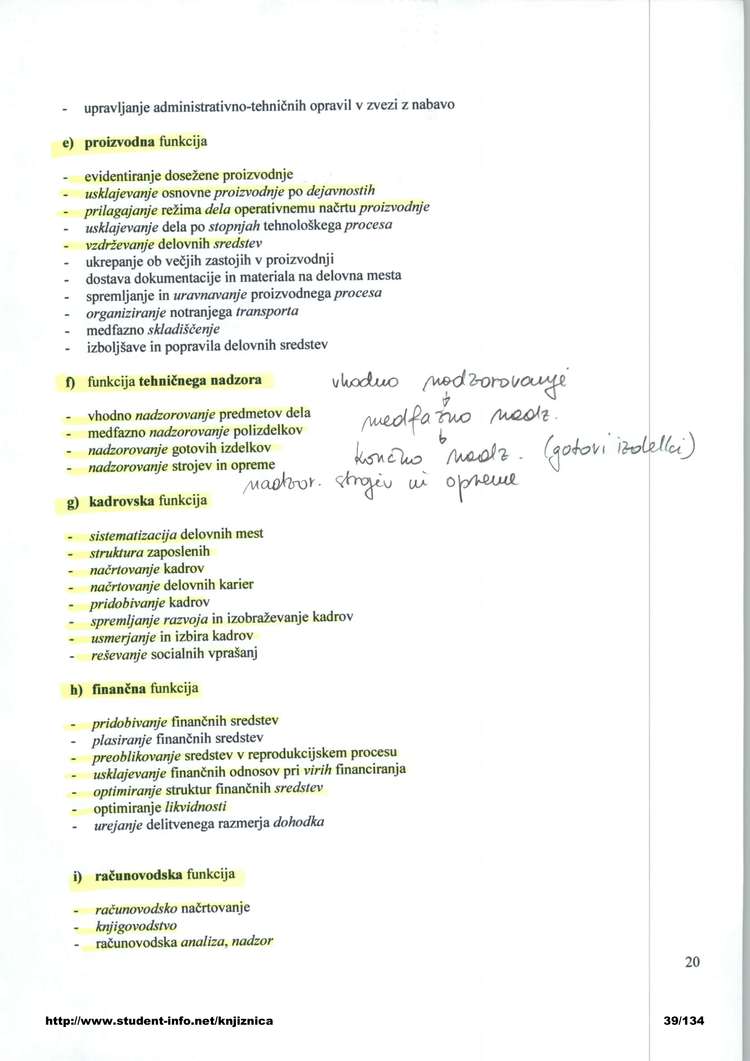 - upravljanje administrativno-tehničnih opravil v zvezi z nabavo
e) proizvodna funkcija
- evidentiranje dosežene proizvodnje
- usklajevanje osnovne proizvodnje po dejavnostih
- prilagajanje režima dela operativnemu načrtu proizvodnje
- usklajevanje dela po stopnjah tehnološkega procesa
- vzdrževanje delovnih sredstev
- ukrepanje ob večjih zastojih v proizvodnji
- dostava dokumentacije in materiala na delovna mesta
- spremljanje in uravnavanje proizvodnega procesa
- organiziranje notranjega transporta
- medfazno skladiščenje
- izboljšave in popravila delovnih sredstev
f) funkcija tehničnega nadzora
vhodno nadzorovanje
- vhodno nadzorovanje predmetov dela
medfazno nadz.
- medfazno nadzorovanje polizdelkov
- nadzorovanje gotovih izdelkov
končno nadz. (gotovi izdelki)
- nadzorovanje strojev in opreme
nadzor. strojev in opreme
g) kadrovska funkcija
- sistematizacija delovnih mest
- struktura zaposlenih
- načrtovanje kadrov
- načrtovanje delovnih karier
- pridobivanje kadrov
- spremljanje razvoja in izobraževanje kadrov
- usmerjanje in izbira kadrov
- reševanje socialnih vprašanj
h) finančna funkcija
- pridobivanje finančnih sredstev
- plasiranje finančnih sredstev
- preoblikovanje sredstev v reprodukcijskem procesu
- usklajevanje finančnih odnosov pri virih financiranja
- optimiranje struktur finančnih sredstev
- optimiranje likvidnosti
- urejanje delitvenega razmerja dohodka
i) računovodska funkcija
- računovodsko načrtovanje
- knjigovodstvo
- računovodska analiza, nadzor
20
http://www.student-info.net/knjiznica
39/134